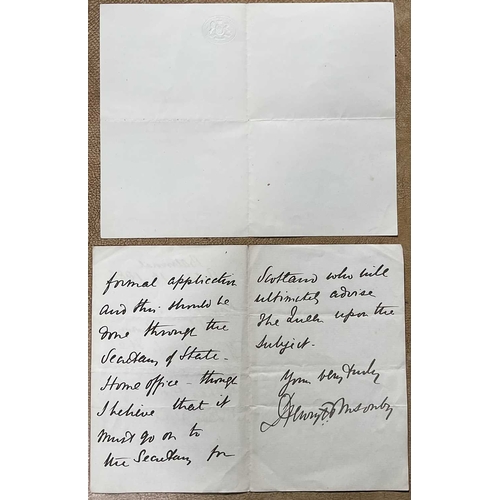 formal application
and this should be
done through the
Secretary of State -
Home office - though
I believe that it
must go on to
the Secretary for
Scotland who will
ultimately advise
The Queen upon the
subject.
Yours very truly
Henry F Ponsonby